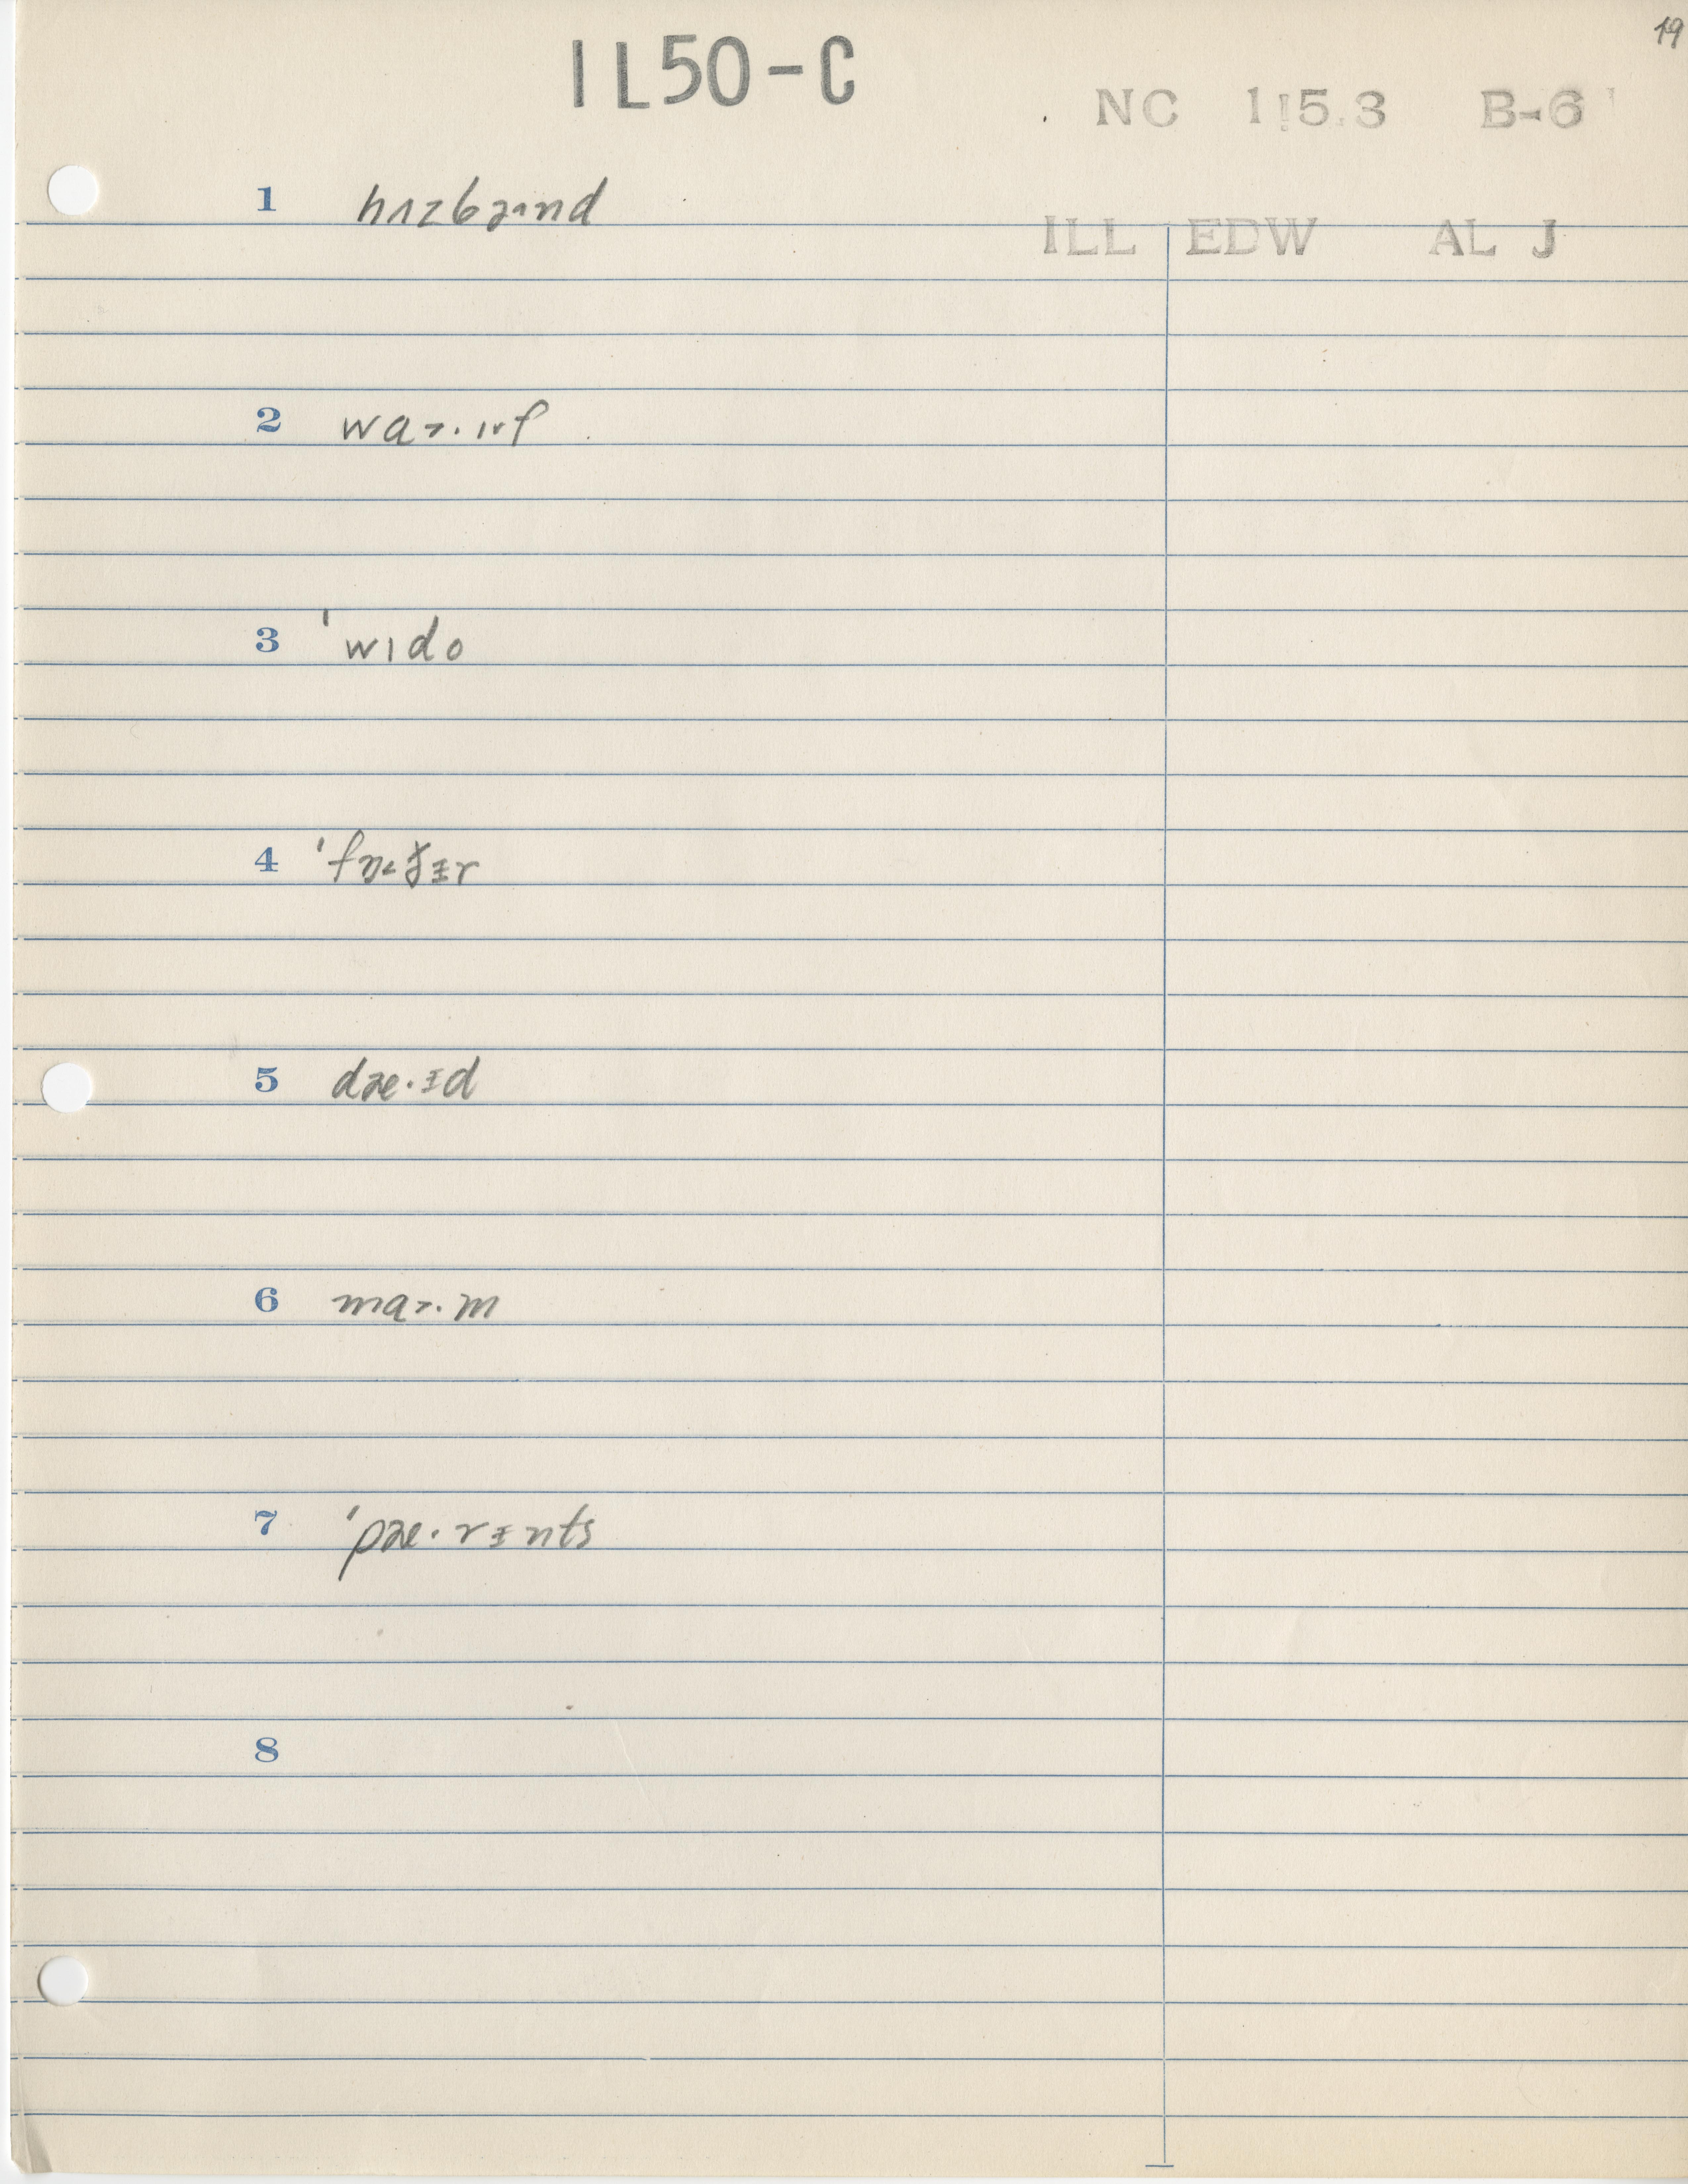 19
IL50-C
NC 1!5.3 B-6
1 hʌzbənd
ILL EDW AL J
2 waɪ·ɪf
3 ˈwɪdo
4
5 dæ·ɨd
6 maɪ·m
7 ˈpæ·rɨnts
8